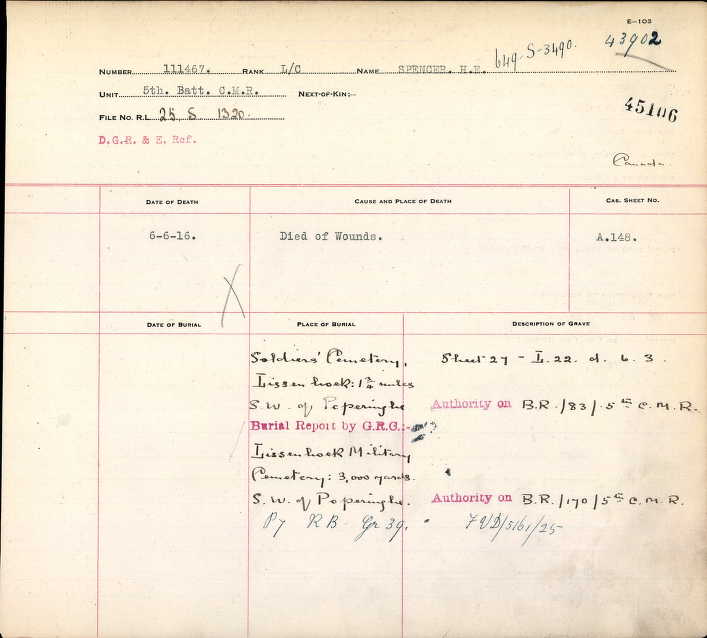 E-103
43902
649-S-3490.
NUMBER 111467. RANK L/C NAME SPENCER. H.E.
UNIT 5th. Batt. C.M.R. NEXT-OF-KIN:-
45106
FILE NO. R.L. 25 S 1320.
D.G.R. & E. Ref.
Canada.
DATE OF DEATH CAUSE AND PLACE OF DEATH CAS. SHEET NO.
6-6-16. Died of Wounds. A.148.
X
DATE OF BURIAL PLACE OF BURIAL DESCRIPTION OF GRAVE
Soldiers' Cemetery, Sheet 27 - L. 22. d. 6. 3.
Lissenhoek: 1¾ miles
S.W. of Poperinghe Authority on B.R./83/ 5th C.M.R.
Burial Report by G.R.G.:-
Lissenhoek Military
Cemetery: 3,000 yards.
S.W. of Poperinghe. Authority on B.R./170/5th C.M.R.
R B Gr 39.